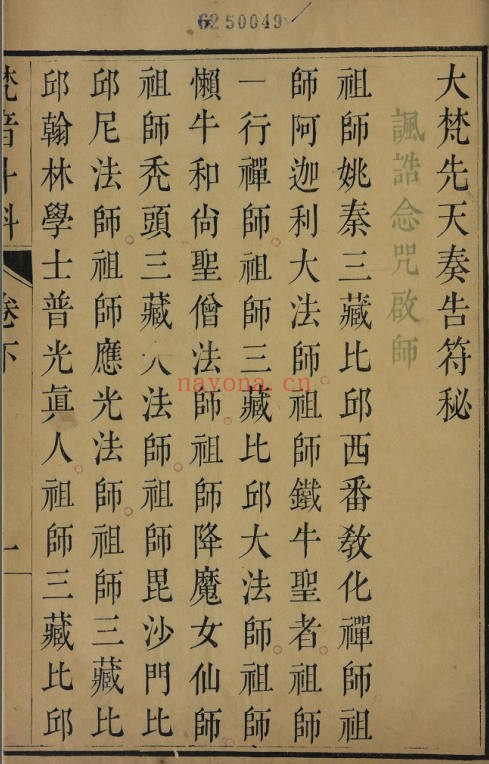 6250049
大梵先天奏告符秘
諷誥念咒啟師
祖師姚秦三藏比邱西番教化禪師祖
師阿迦利大法師祖師鐵牛聖者祖師
一行禪師祖師三藏比邱大法師祖師
懶牛和尚聖僧法師祖師降魔女仙師
祖師禿頭三藏大法師祖師毘沙門比
邱尼法師祖師應光法師祖師三藏比
邱翰林學士普光眞人祖師三藏比邱
梵音斗科
卷下
一
nayona.cn